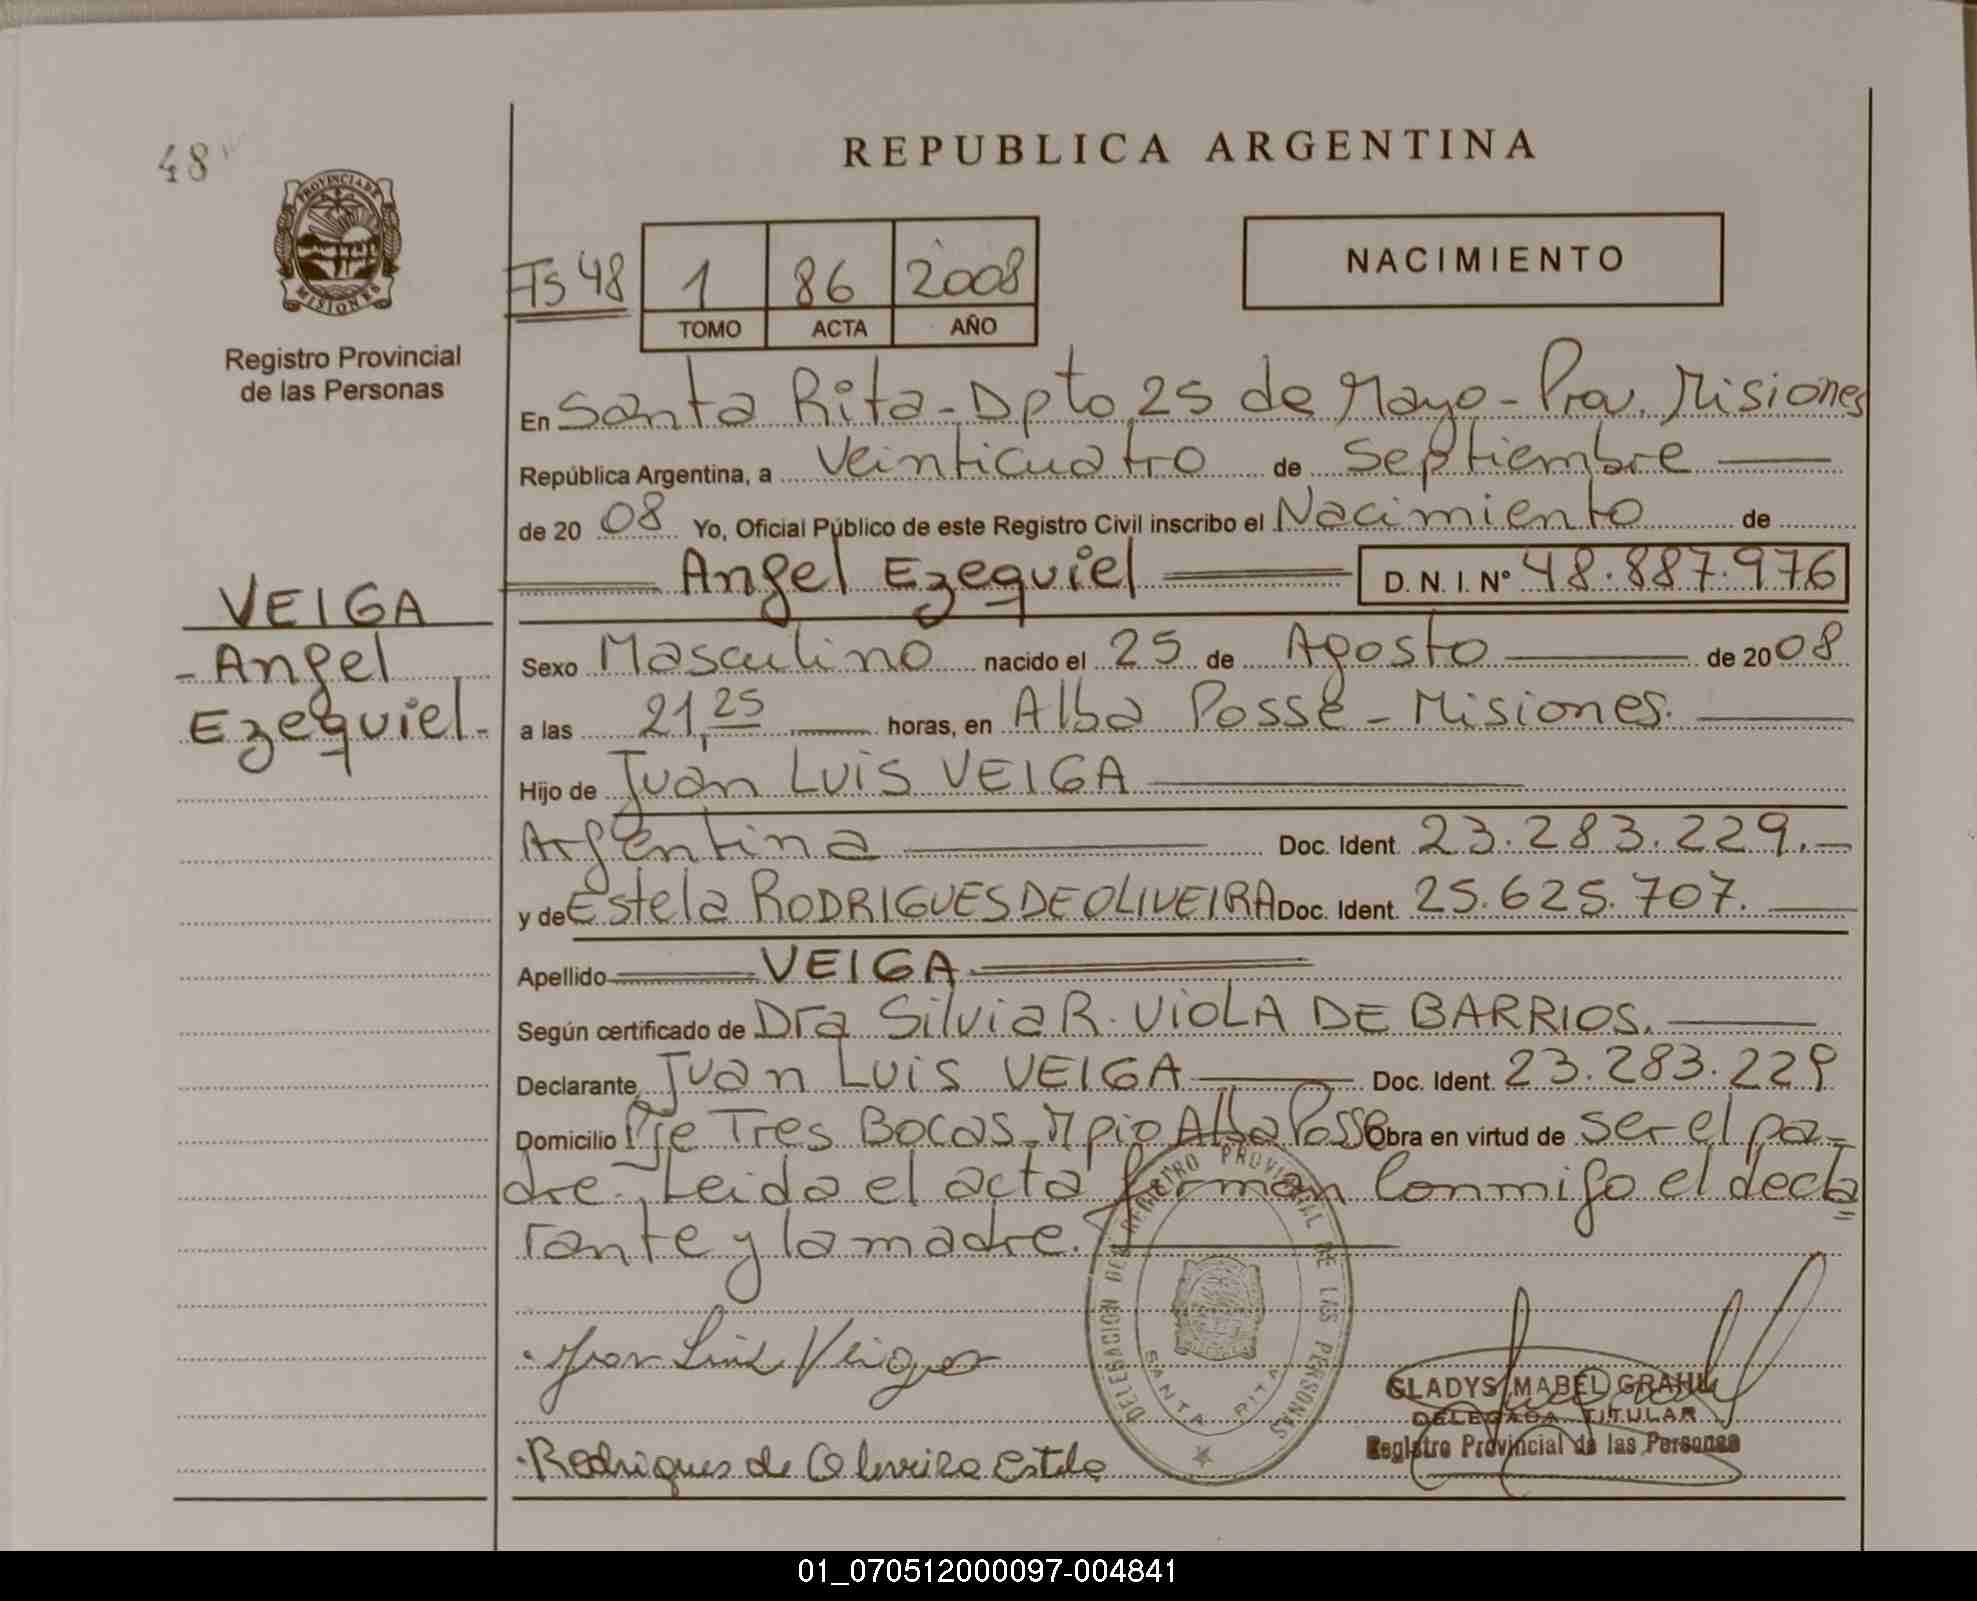 48
REPUBLICA ARGENTINA
PROVINCIA DE
MISIONES
Registro Provincial
de las Personas
Fs 48
1 86 2008
TOMO ACTA AÑO
NACIMIENTO
En Santa Rita - Dpto 25 de Mayo - Prov. Misiones
República Argentina, a Veinticuatro de Septiembre
de 20 08 Yo, Oficial Público de este Registro Civil inscribo el Nacimiento de
Angel Ezequiel D. N. I. Nº 48.887.976
VEIGA
- Angel
Ezequiel -
Sexo Masculino nacido el 25 de Agosto de 20 08
a las 21,25 horas, en Alba Posse - Misiones.
Hijo de Juan Luis VEIGA
Argentina Doc. Ident. 23.283.229.-
y de Estela RODRIGUES DE OLIVEIRA Doc. Ident. 25.625.707.
Apellido VEIGA
Según certificado de Dra Silvia R. VIOLA DE BARRIOS.
Declarante Juan Luis VEIGA Doc. Ident. 23.283.229
Domicilio Pje Tres Bocas - Mpio Alba Posse Obra en virtud de ser el pa-
dre., Leida el acta firman Conmigo el decla
rante y la madre.
DELEGACION DEL REGISTRO PROVINCIAL DE LAS PERSONAS
SANTA RITA
Juan Luis Veiga
GLADYS MABEL GRAHL
DELEGADA TITULAR
Registro Provincial de las Personas
Rodrigues de Oliveira Estela
01_070512000097-004841